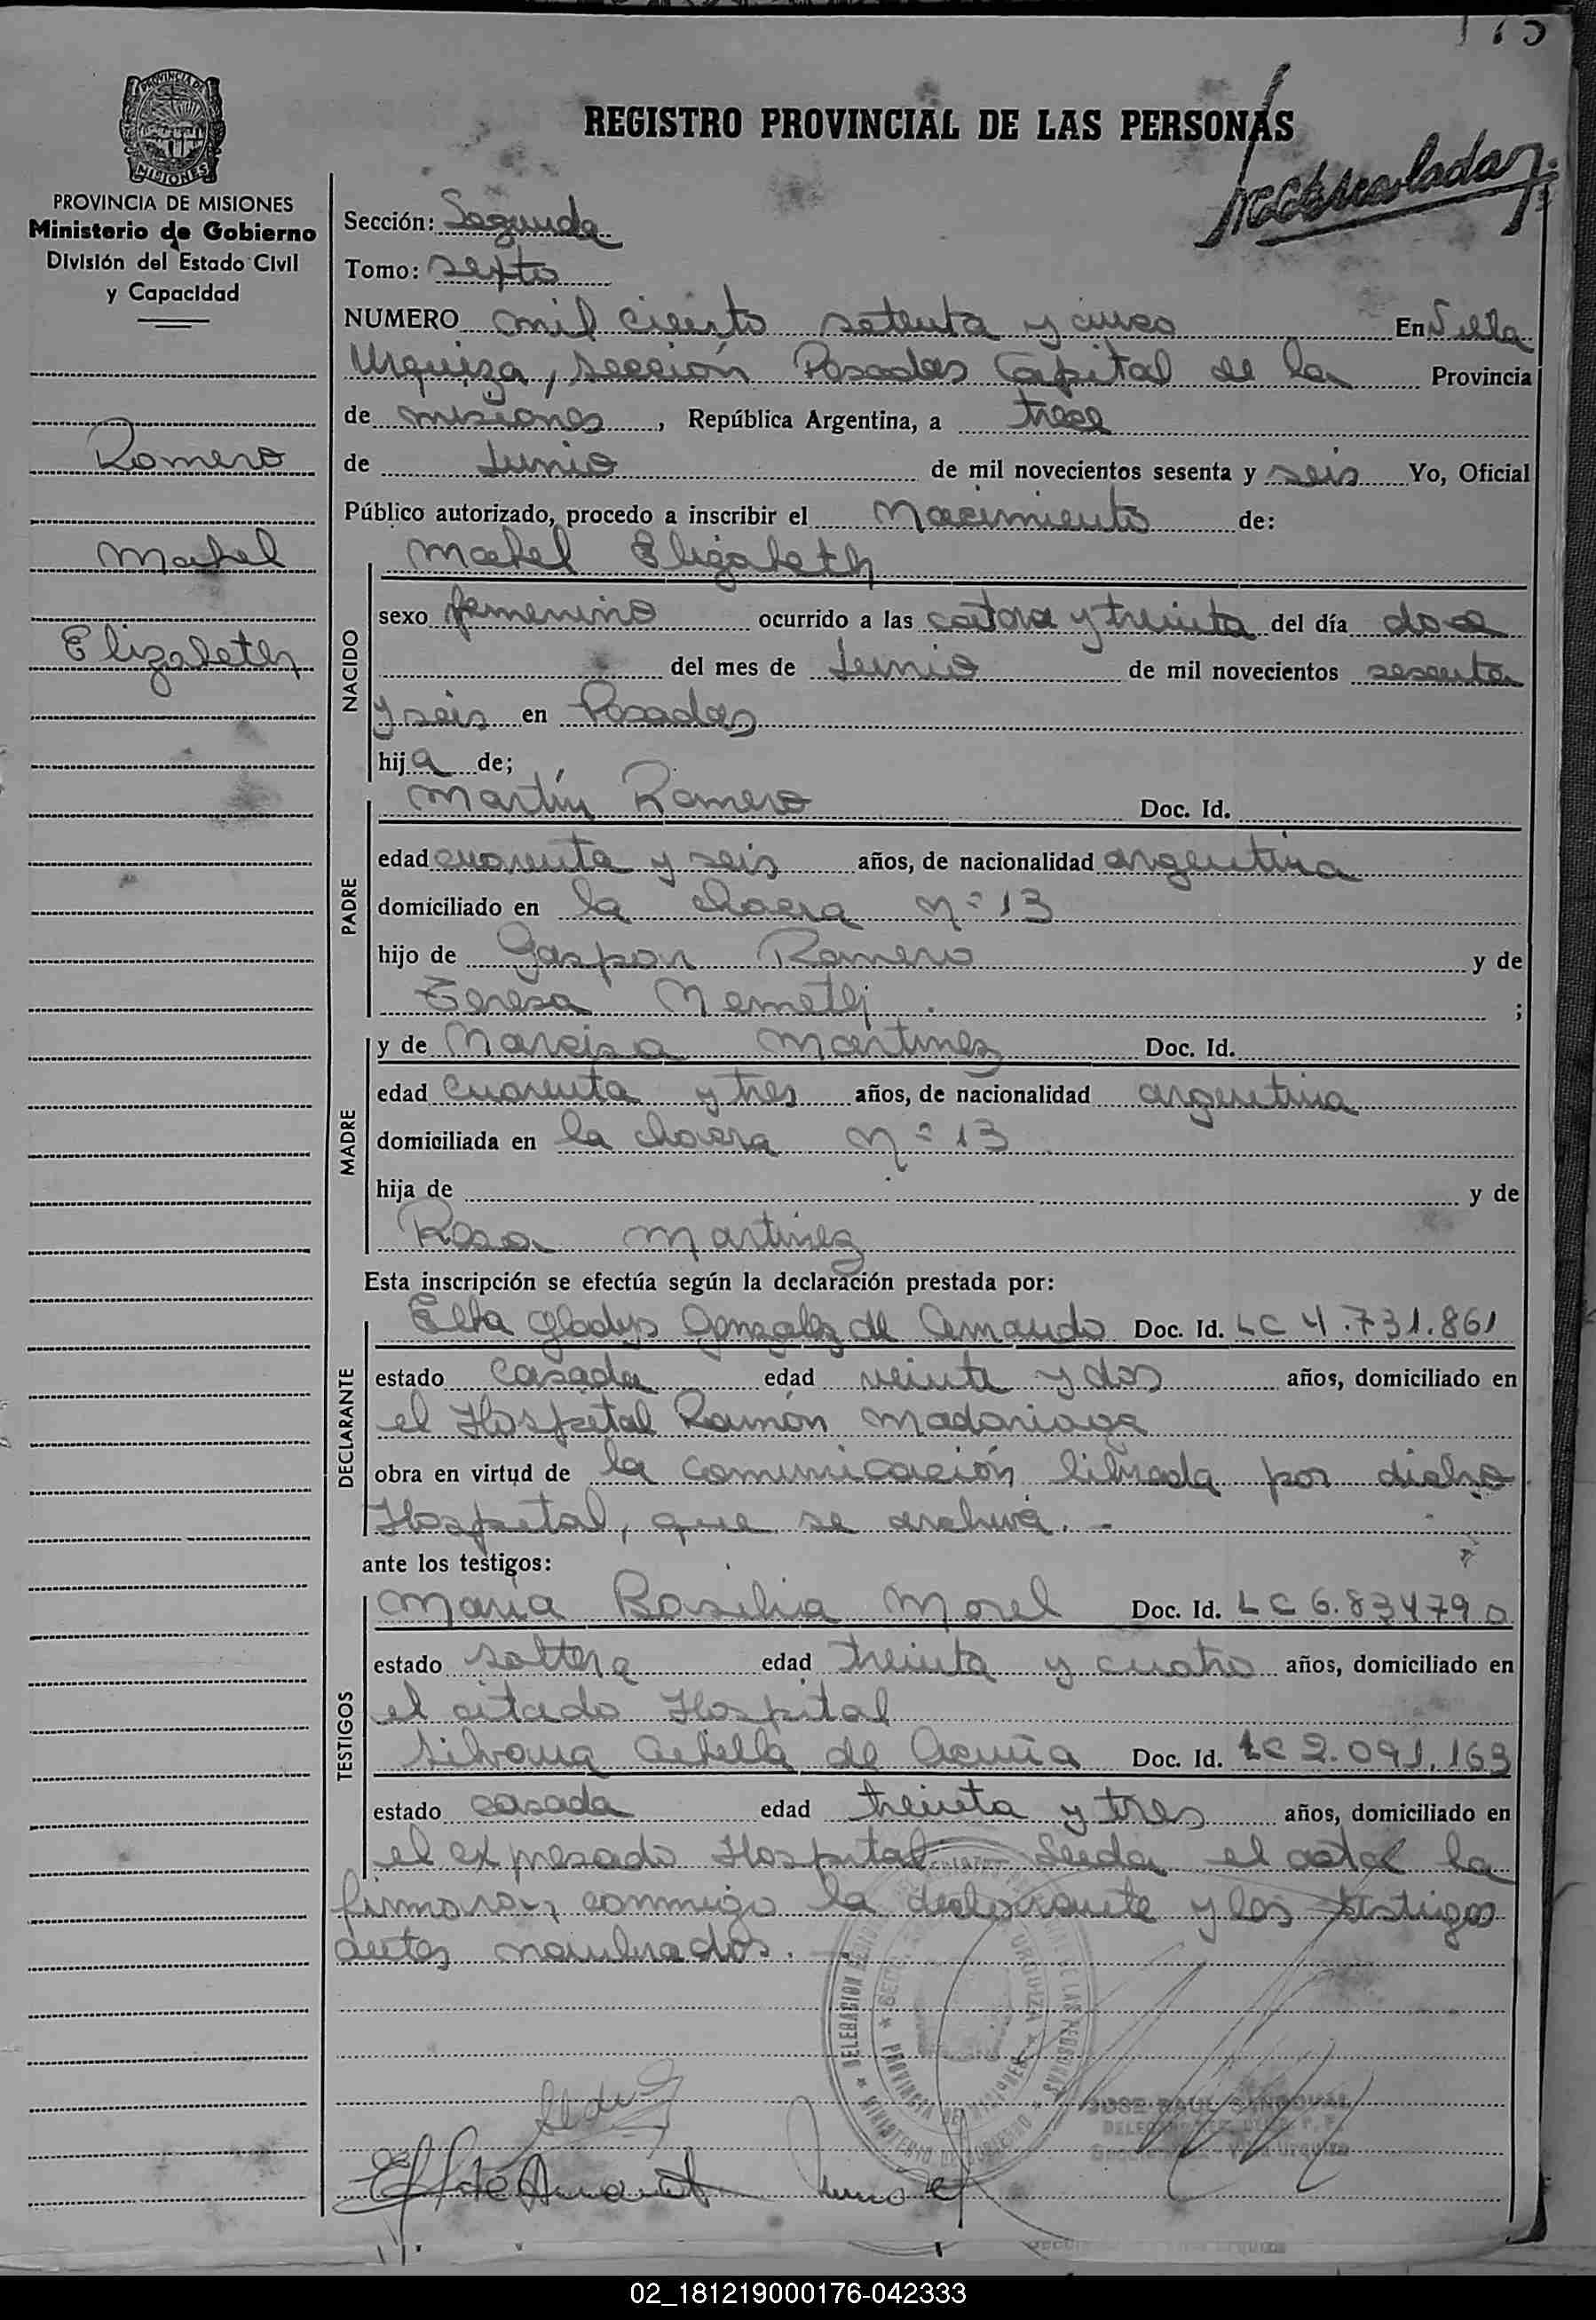 175
REGISTRO PROVINCIAL DE LAS PERSONAS
PROVINCIA DE MISIONES
Ministerio de Gobierno
División del Estado Civil
y Capacidad
Romero
Mabel
Elizabeth
Sección: Segunda
Tomo: sexto
NUMERO mil ciento setenta y cinco En Villa
Urquiza, sección Posadas Capital de la Provincia
de misiones, República Argentina, a trece
de Junio de mil novecientos sesenta y seis Yo, Oficial
Público autorizado, procedo a inscribir el Nacimiento de:
NACIDO
Mabel Elizabeth
sexo femenino ocurrido a las catorce y treinta del día doce
del mes de Junio de mil novecientos sesenta
y seis en Posadas
hija de;
PADRE
Martín Romero Doc. Id.
edad cuarenta y seis años, de nacionalidad argentina
domiciliado en la chacra Nº 13
hijo de Gaspar Romero y de
Teresa ;
MADRE
y de Narcisa Martinez Doc. Id.
edad cuarenta y tres años, de nacionalidad argentina
domiciliada en la chacra Nº 13
hija de y de
Rosa Martinez
Esta inscripción se efectúa según la declaración prestada por:
DECLARANTE
Elba Gladys Gonzalez de Doc. Id. LC 4.731.861
estado casada edad veinte y dos años, domiciliado en
el Hospital Ramón Madariaga
obra en virtud de la comunicación librada por dicho
Hospital, que se archiva. -
ante los testigos:
TESTIGOS
Maria Basilia Morel Doc. Id. LC 6.834790
estado soltera edad treinta y cuatro años, domiciliado en
el citado Hospital
Silvana de Acuña Doc. Id. LC 2.091.163
estado casada edad treinta y tres años, domiciliado en
el expresado Hospital Leida el acta la
firmaron conmigo la declarante y los testigos
antes nombrados.
JOSE RAUL SANDOVAL
02_181219000176-042333